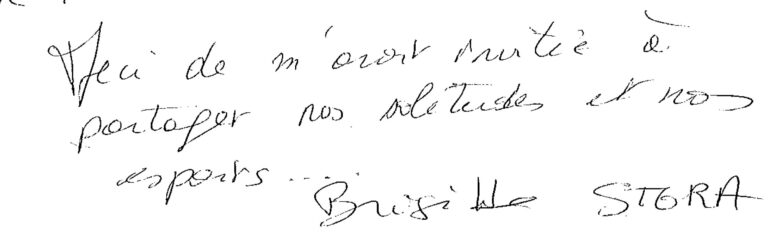 Merci de m'avoir invitée à
partager nos solitudes et nos
espoirs ....
Brigitte STORA